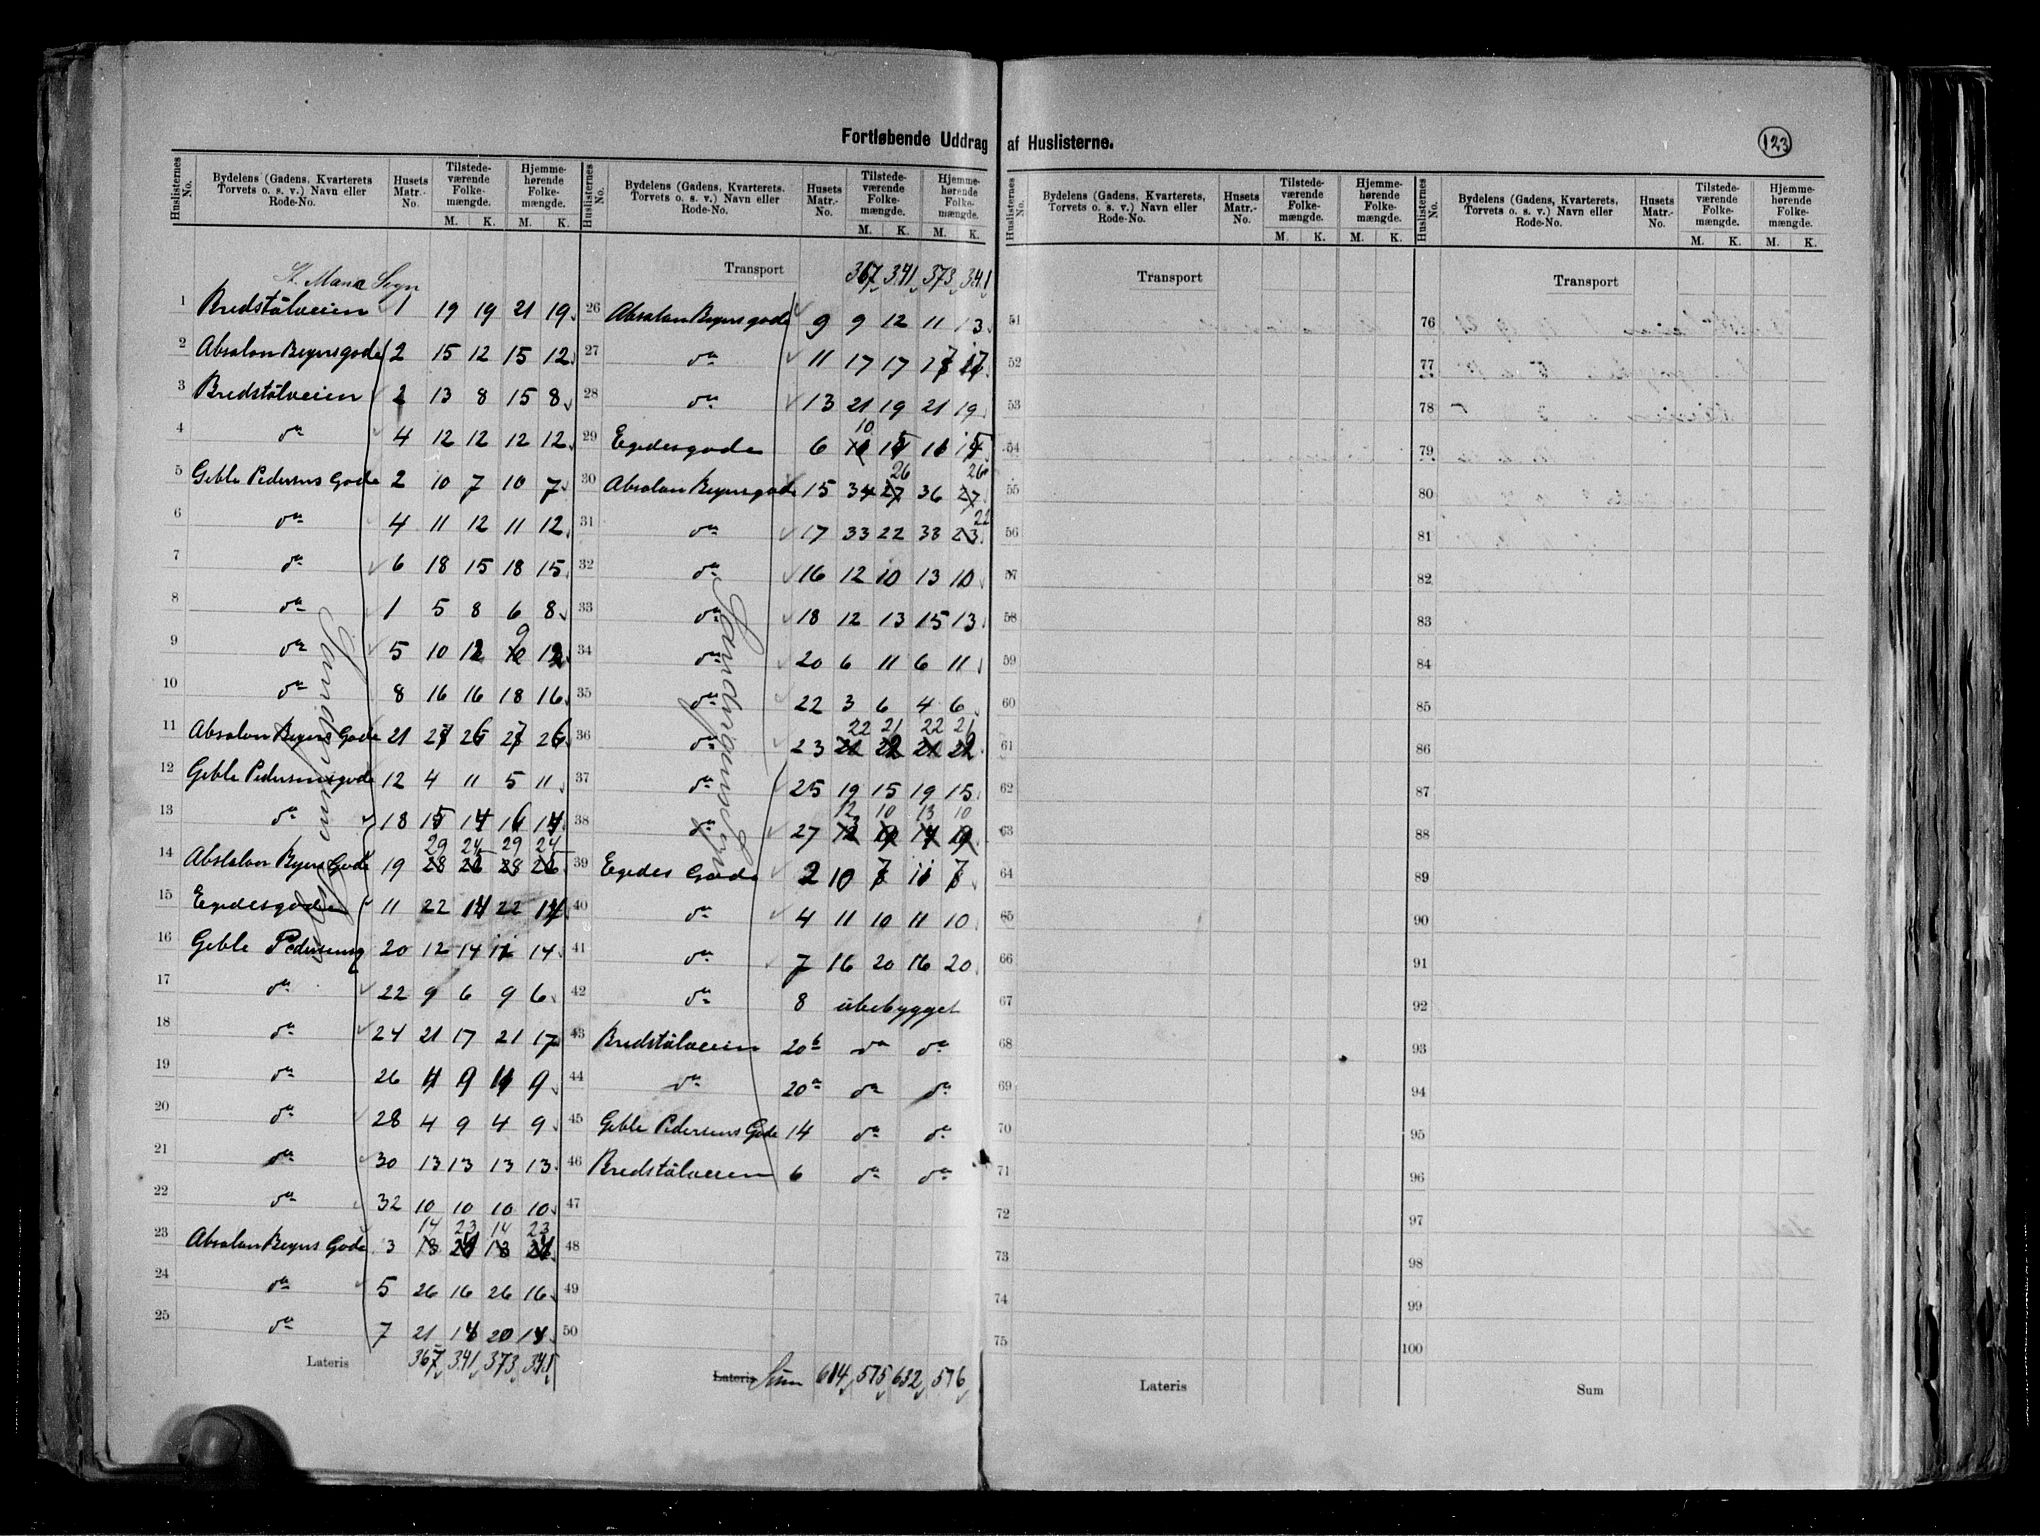 Fortløbende Uddrag af Huslisterne.
123
Huslisternes No. | Bydelens (Gadens, Kvarterets Torvets o. s. v.) Navn eller Rode-No. | Husets Matr.-No. | Tilstedeværende Folkemængde. M. K. | Hjemmehørende Folkemængde. M. K.
St. Maria Sogn
1 Bredstålveien 1 19 19 21 19
2 Absalon Beyersgade 2 15 12 15 12
3 Bredstålveien 2 13 8 15 8
4 do 4 12 12 12 12
5 Geble Pedersens Gade 2 10 7 10 7
6 do 4 11 12 11 12
7 do 6 18 15 18 15
8 do 1 5 8 6 8
9 do 5 10 12 9 12
10 do 8 16 16 18 16
11 Absalon Beyers Gade 21 27 26 27 26
12 Geble Pedersensgade 12 4 11 5 11
13 do 18 15 14 16 14
14 Abslalon Beyers Gade 19 29 24 29 24
15 Egedesgaden 11 22 14 22 14
16 Geble Pedersensg 20 12 14 11 14
17 do 22 9 6 9 6
18 do 24 21 17 21 17
19 do 26 11 9 11 9
20 do 28 4 9 4 9
21 do 30 13 13 13 13
22 do 32 10 10 10 10
23 Absalon Beyers Gade 3 14 23 14 23
24 do 5 26 16 26 16
25 do 7 21 14 20 14
Lateris 367 341 373 341
Sandvigens Sogn
Huslisternes No. | Bydelens (Gadens, Kvarterets. Torvets o. s. v.) Navn eller Rode-No. | Husets Matr.-No. | Tilstedeværende Folkemængde. M. K. | Hjemmehørende Folkemængde. M. K.
Transport 367 341 373 341
26 Absalon Beyersgade 9 9 12 11 13
27 do 11 17 17 17 17
28 do 13 21 19 21 19
29 Egedesgade 6 10 15 11 15
30 Absalon Beyersgade 15 34 26 36 26
31 do 17 33 22 33 22
32 do 16 12 10 13 10
33 do 18 12 13 15 13
34 do 20 6 11 6 11
35 do 22 3 6 4 6
36 do 23 22 21 22 21
37 do 25 19 15 19 15
38 do 27 12 10 13 10
39 Egedes Gade 2 10 7 11 7
40 do 4 11 10 11 10
41 do 7 16 20 16 20
42 do 8 ubebygget
43 Bredstålveien 20b do do
44 do 20a do do
45 Geble Pedersens Gade 14 do do
46 Bredstålveien 6 do do
47
48
49
50
Lateris Sum 614 575 632 576
Sandvigens Sogn
Huslisternes No. | Bydelens (Gadens, Kvarterets, Torvets o. s. v.) Navn eller Rode-No. | Husets Matr.-No. | Tilstedeværende Folkemængde. M. K. | Hjemmehørende Folkemængde. M. K.
Transport
51
52
53
54
55
56
57
58
59
60
61
62
63
64
65
66
67
68
69
70
71
72
73
74
75
Lateris
Huslisternes No. | Bydelens (Gadens, Kvarterets, Torvets o. s. v.) Navn eller Rode-No. | Husets Matr.-No. | Tilstedeværende Folkemængde. M. K. | Hjemmehørende Folkemængde. M. K.
Transport
76
77
78
79
80
81
82
83
84
85
86
87
88
89
90
91
92
93
94
95
96
97
98
99
100
Sum